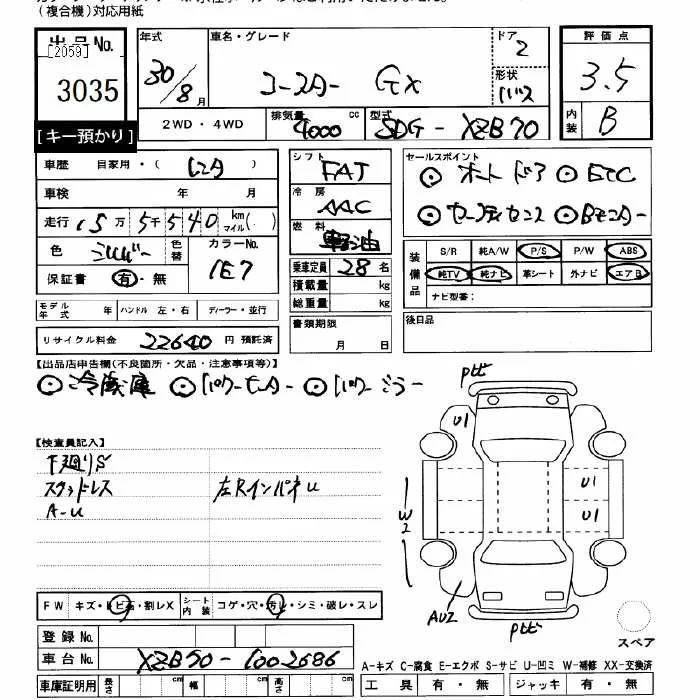 (複合機)対応用紙
出品No.
[2059]
3035
[キー預かり]
年式
30/8月
車名・グレード
コースター GX
ドア
2
形状
バス
評価点
3.5
内装
B
2WD・4WD
排気量
4000cc
型式
SDG-XZB70
車歴 自家用・(レンタ)
車検 年 月
走行 15万5千540 km マイル( )
色 シルバー 色替 カラーNo. 1E7
保証書 有・無
シフト
FAT
冷房
AAC
燃料
軽油
乗車定員 28名
積載量 kg
総重量 kg
書類期限
月 日
セールスポイント
オートドア ETC
セーフティセンス Bモニター
装備品
S/R 純A/W P/S P/W ABS
純TV 純ナビ 革シート 外ナビ エアB
ナビ型番:
後日品
モデル年式 年 ハンドル 左・右 ディーラー・並行
リサイクル料金 22640円預託済
【出品店申告欄(不良箇所・欠品・注意事項等)】
冷蔵庫 パワーモニター パワーミラー
【検査員記入】
下廻りS
スタッドレス
A-U
左Rインパネu
FW キズ・トビ石・割レX シート内装 コゲ・穴・汚レ・シミ・破レ・スレ
登録No.
車台No. XZB70-1002686
車庫証明用 長さ cm 幅 cm 高さ cm
U1
U1
U1
W2
AU2
スペア
A-キズ C-腐食 E-エクボ S-サビ U-凹ミ W-補修 XX-交換済
工具 有・無 ジャッキ 有・無